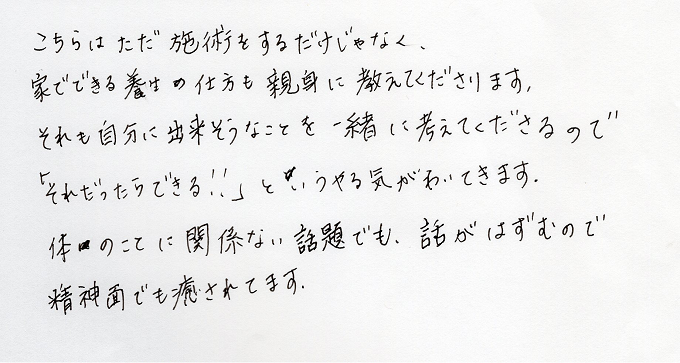 こちらはただ施術をするだけじゃなく、
家でできる養生の仕方も親身に教えてくださります。
それも自分に出来そうなことを一緒に考えてくださるので
「それだったらできる!!」というやる気がわいてきます。
体のことに関係ない話題でも、話がはずむので
精神面でも癒されてます。